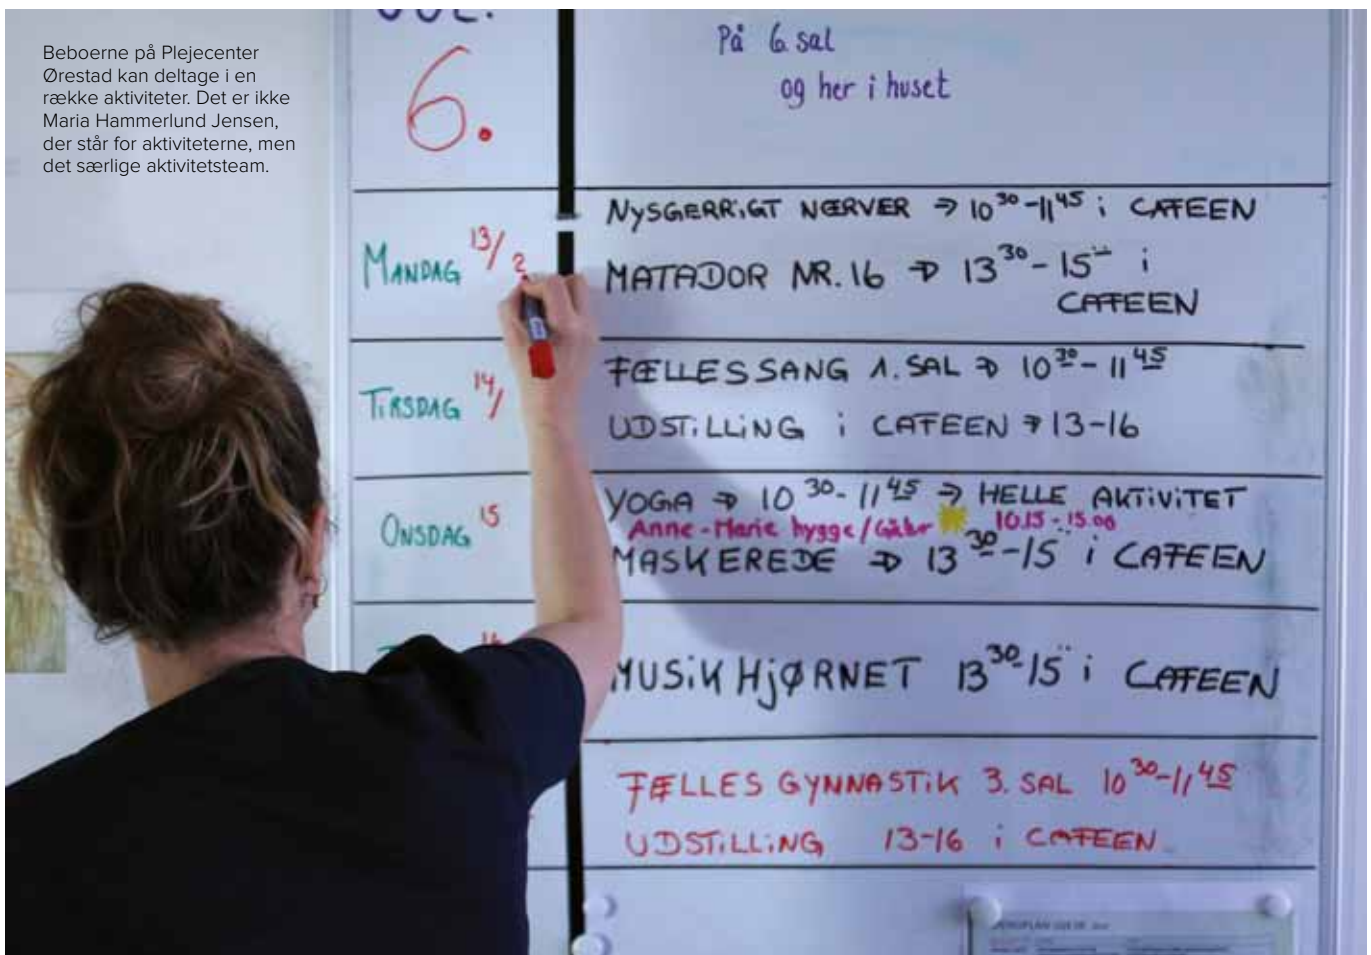 Beboerne på Plejecenter
Ørestad kan deltage i en
række aktiviteter. Det er ikke
Maria Hammerlund Jensen,
der står for aktiviteterne, men
det særlige aktivitetsteam.
6.
På 6. sal
og her i huset
MANDAG 13/2
NYSGERRIGT NÆRVER ⇒ 10³⁰-11⁴⁵ i CAFEEN
MATADOR NR. 16 ⇒ 13³⁰-15⁻ i
CAFEEN
TIRSDAG 14/
FÆLLESSANG 1. SAL ⇒ 10³⁰-11⁴⁵
UDSTILLING i CAFEEN ⇒ 13-16
ONSDAG 15
YOGA ⇒ 10³⁰-11⁴⁵ ⇒ HELLE AKTIVITET
Anne-Marie hygge/ 10.15-15.00
MASKEREDE ⇒ 13³⁰-15 i CAFEEN
MUSIKHJØRNET 13³⁰-15 i CAFEEN
FÆLLES GYNNASTIK 3. SAL 10³⁰-11⁴⁵
UDSTILLING 13-16 i CAFEEN